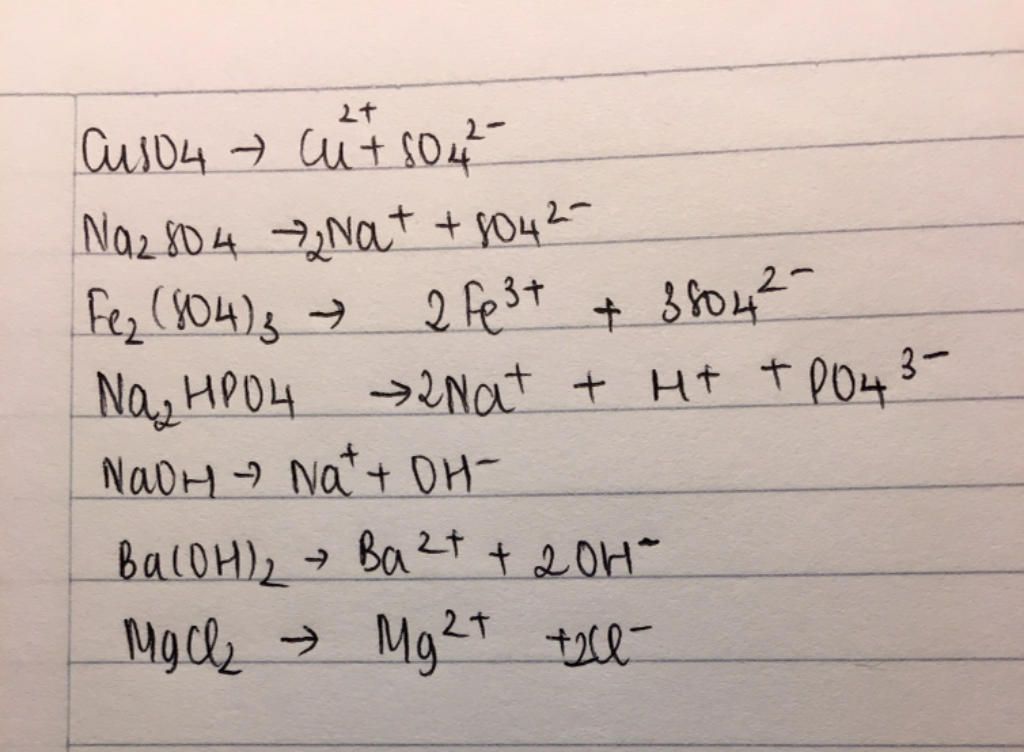 CuSO4 → Cu²⁺ + SO4²⁻
Na₂SO4 → 2Na⁺ + SO4²⁻
Fe₂(SO4)₃ → 2Fe³⁺ + 3SO4²⁻
Na₂HPO4 → 2Na⁺ + H⁺ + PO4³⁻
NaOH → Na⁺ + OH⁻
Ba(OH)₂ → Ba²⁺ + 2OH⁻
MgCl₂ → Mg²⁺ + 2Cl⁻